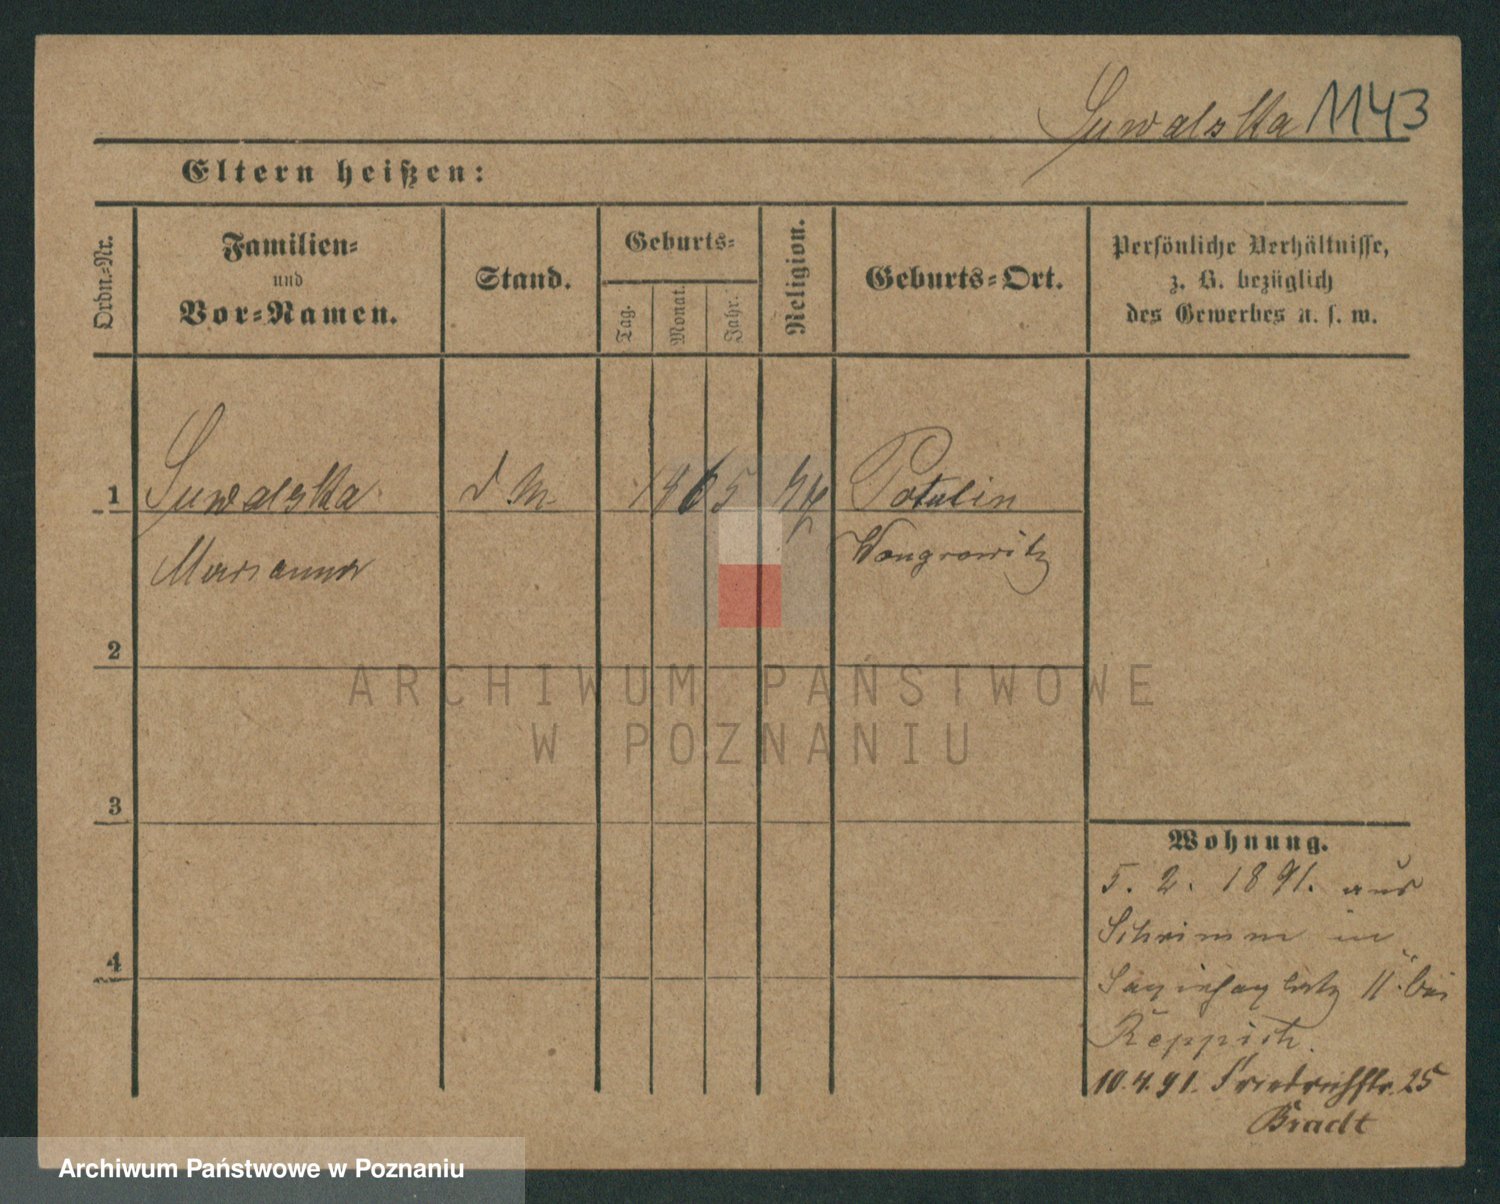 Suwalska 1143
Eltern heißen:
Ordn.-Nr.
Familien-
und
Vor-Namen.
Stand.
Geburts-
Tag.
Monat.
Jahr.
Religion.
Geburts-Ort.
Persönliche Verhältnisse,
z. B. bezüglich
des Gewerbes u. s. w.
1 Suwalska d. M. 1865 Potulin
Marianna Wongrowitz
2
3
4
Wohnung.
5. 2. 1891. aus
Schrimm in
Sapiehaplatz 11 bei
Reppich.
10.4.91. Friedrichstr. 25
Bradt
ARCHIWUM PAŃSTWOWE
W POZNANIU
Archiwum Państwowe w Poznaniu